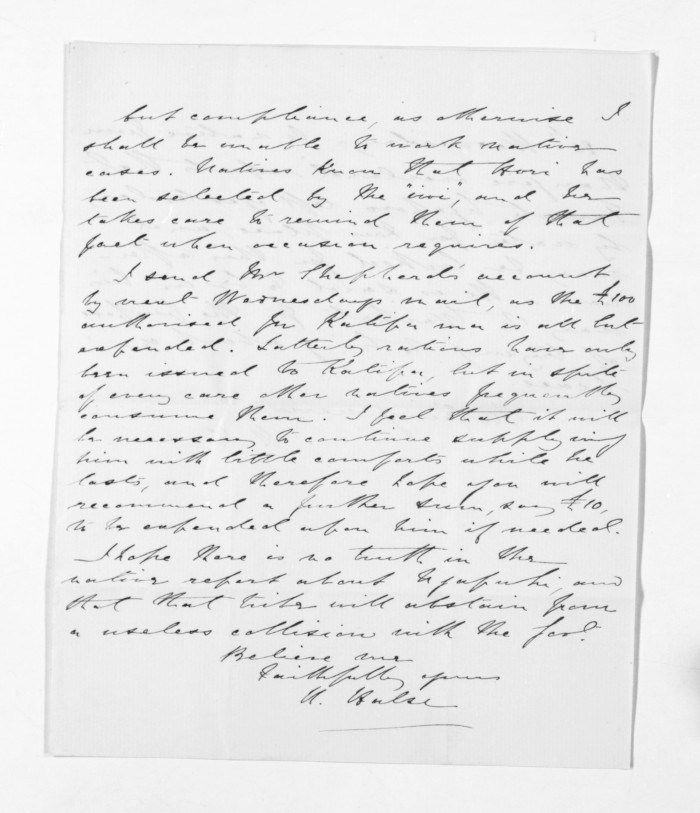 but compliance, as otherwise I
shall be unable to work native
cases. Natives know that Hori has
been selected by the "iwi", and he
takes care to remind them of that
fact when occasion requires.
I send Mr Shepherd's account
by next Wednesdays mail, as the £100
authorised for Katipa ma is all but
expended. Latterly rations have only
been issued to Katipa, but in spite
of every care other natives frequently
consume them. I feel that it will
be necessary to continue supplying
him with little comforts while he
lasts, and therefore hope you will
recommend a further sum, say £10,
to be expended upon him if needed.
I hope there is no truth in the
native report about Ngapuhi, and
that that tribe will abstain from
a useless collision with the Govt.
Believe me
Faithfully yours
Hulse